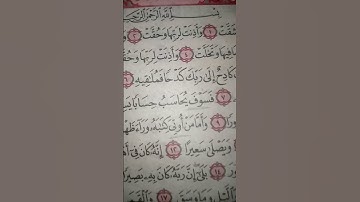 بِسْمِ اللَّهِ الرَّحْمَٰنِ الرَّحِيمِ
شَقَّتْ ١ وَأَذِنَتْ لِرَبِّهَا وَحُقَّتْ ٢
مَا فِيهَا وَتَخَلَّتْ ٤ وَأَذِنَتْ لِرَبِّهَا وَحُ
كَادِحٌ إِلَىٰ رَبِّكَ كَدْحًا فَمُلَٰقِيهِ ٦
٧ فَسَوْفَ يُحَاسَبُ حِسَابًا يَسِ
ورًا ٩ وَأَمَّا مَنْ أُوتِيَ كِتَٰبَهُ وَرَاءَ ظَهْ
وَيَصْلَىٰ سَعِيرًا ١٢ إِنَّهُ كَانَ فِي أَ
ورَ ١٤ بَلَىٰ إِنَّ رَبَّهُ كَانَ بِهِ بَصِيرًا
وَالَّيْلِ وَمَا وَسَقَ ١٧ وَالْقَمَ